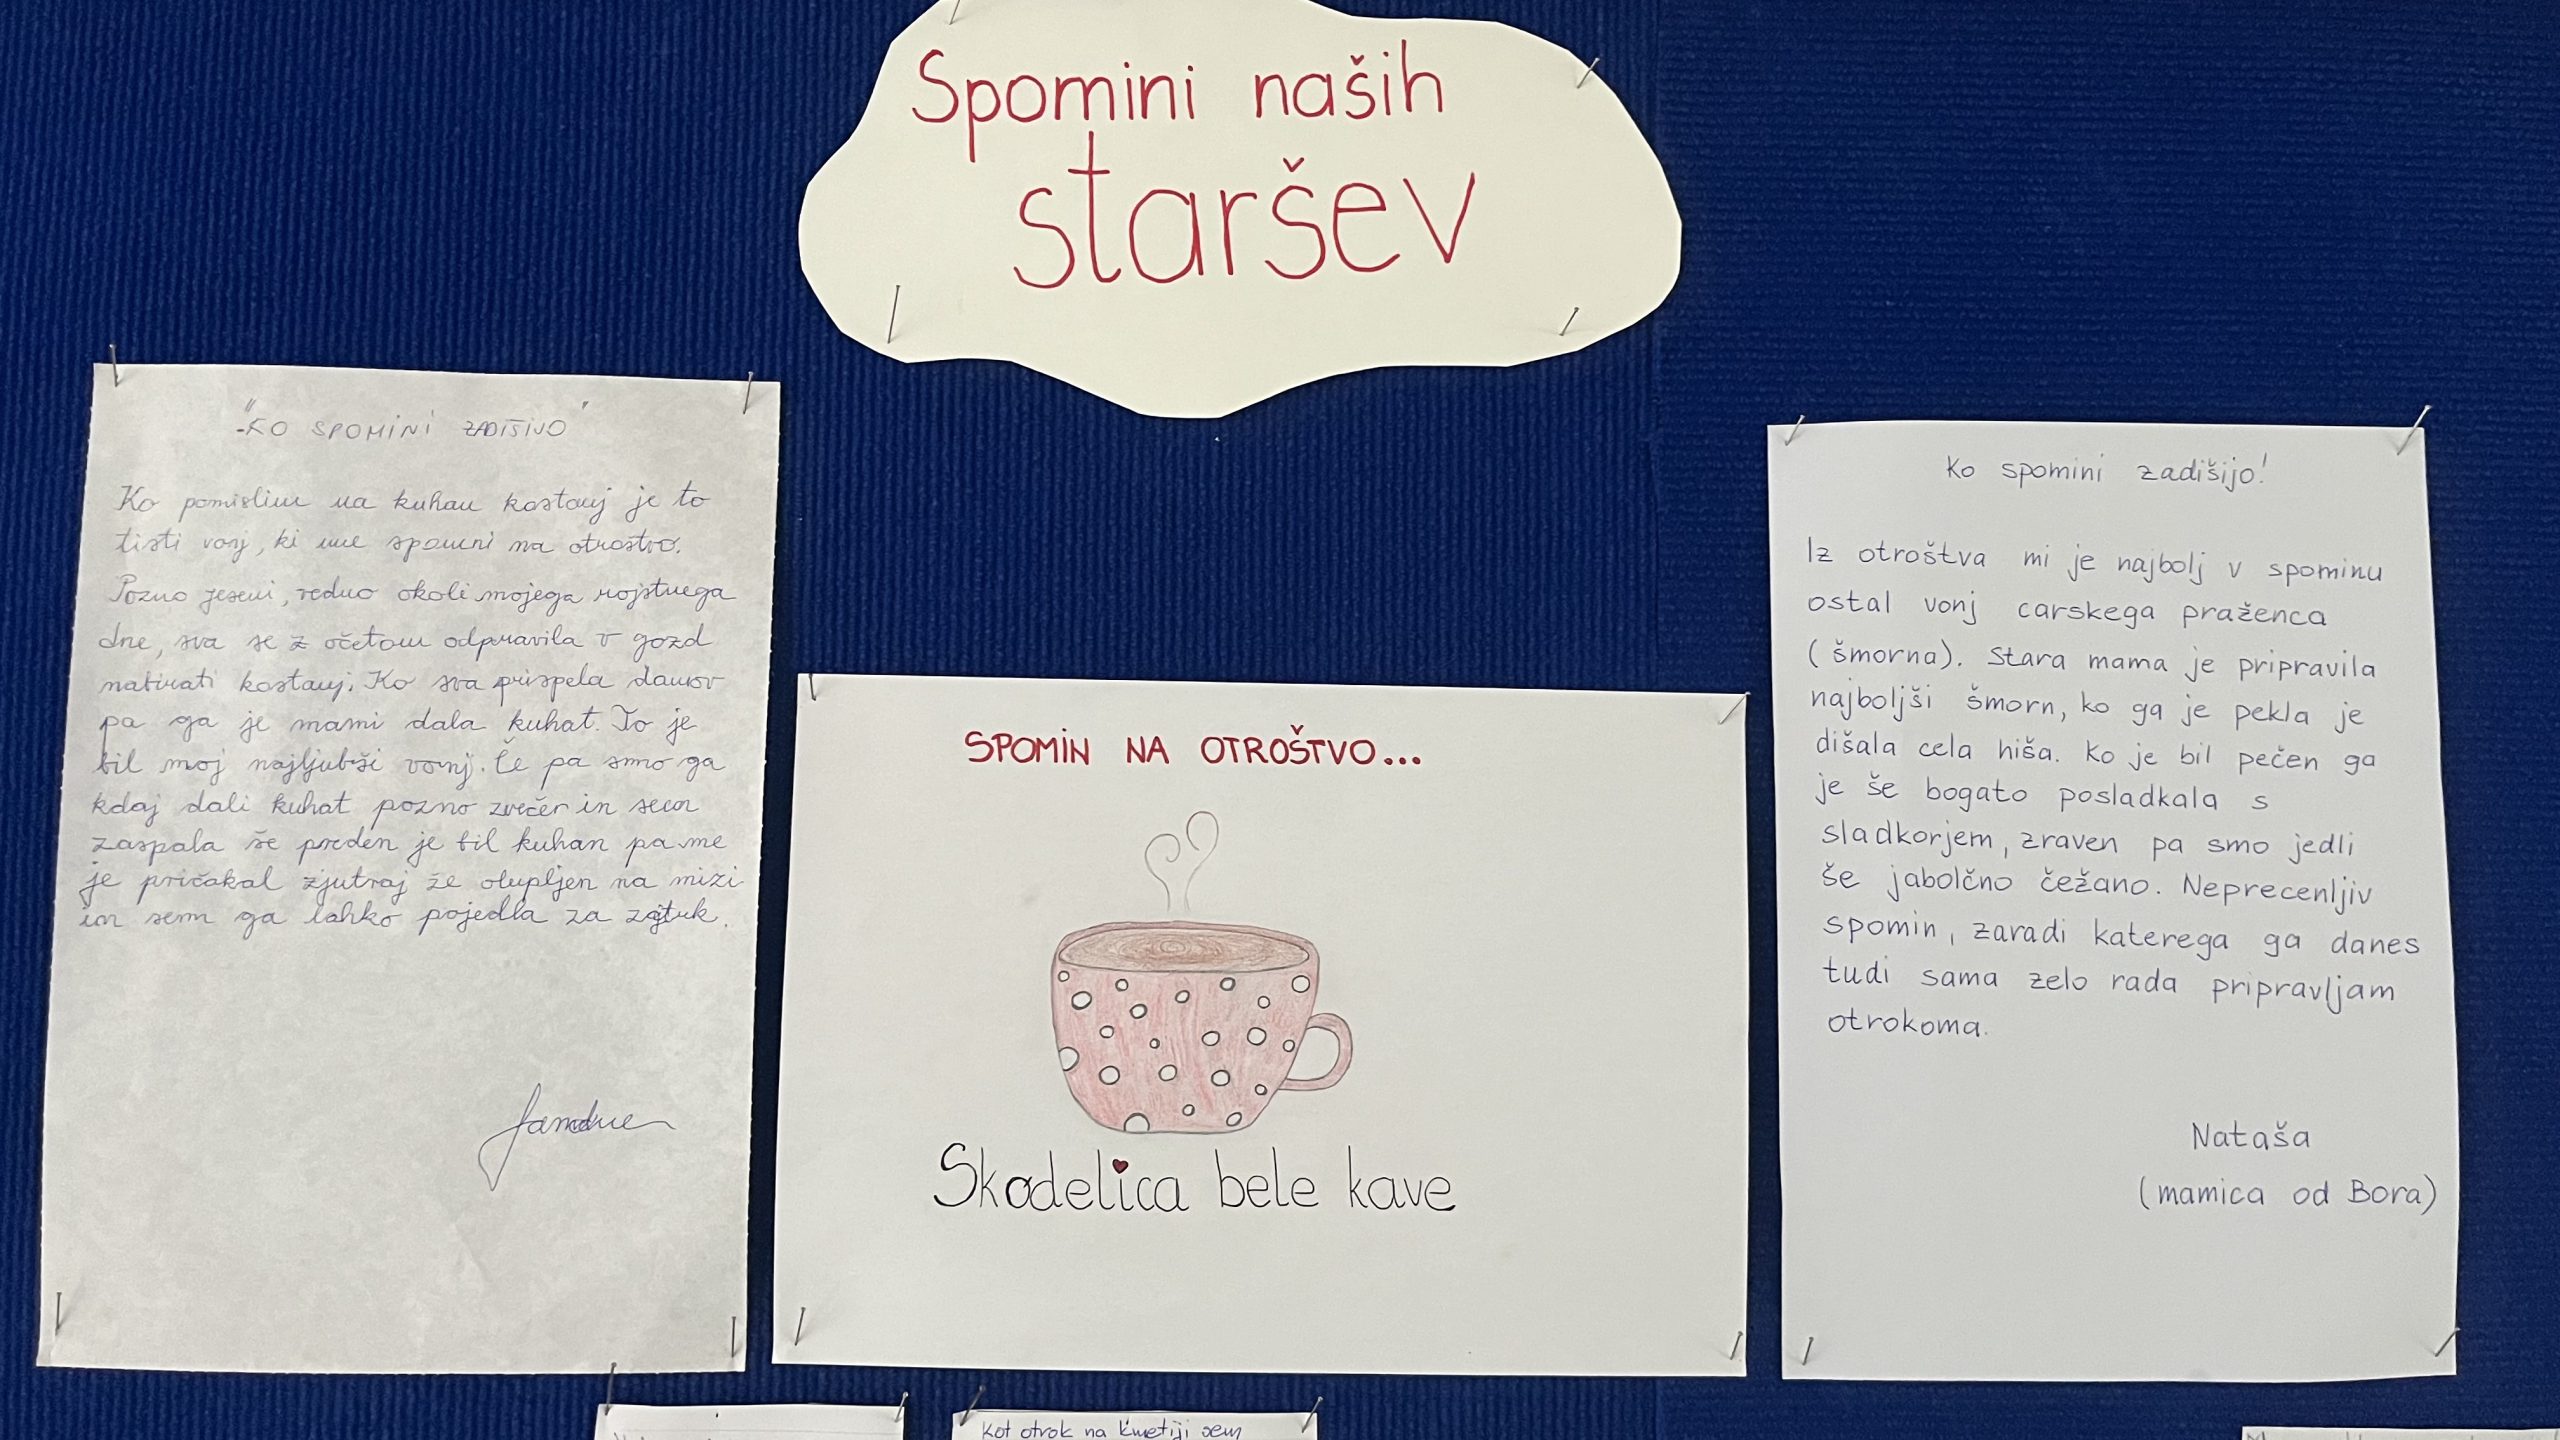 Spomini naših
staršev
"KO SPOMINI ZADIŠIJO"
Ko pomislim na kuhan kostanj je to
tisti vonj, ki me spomni na otroštvo.
Pozno jeseni, vedno okoli mojega rojstnega
dne, sva se z očetom odpravila v gozd
nabirati kostanj. Ko sva prispela domov
pa ga je mami dala kuhat. To je
bil moj najljubši vonj. Če pa smo ga
kdaj dali kuhat pozno zvečer in sem
zaspala še preden je bil kuhan pa me
je pričakal zjutraj že olupljen na mizi
in sem ga lahko pojedla za zajtrk.
SPOMIN NA OTROŠTVO...
Skodelica bele kave
Ko spomini zadišijo!
Iz otroštva mi je najbolj v spominu
ostal vonj carskega praženca
(šmorna). Stara mama je pripravila
najboljši šmorn, ko ga je pekla je
dišala cela hiša. Ko je bil pečen ga
je še bogato posladkala s
sladkorjem, zraven pa smo jedli
še jabolčno čežano. Neprecenljiv
spomin, zaradi katerega ga danes
tudi sama zelo rada pripravljam
otrokoma.
Nataša
(mamica od Bora)
Kot otrok na kmetiji sem